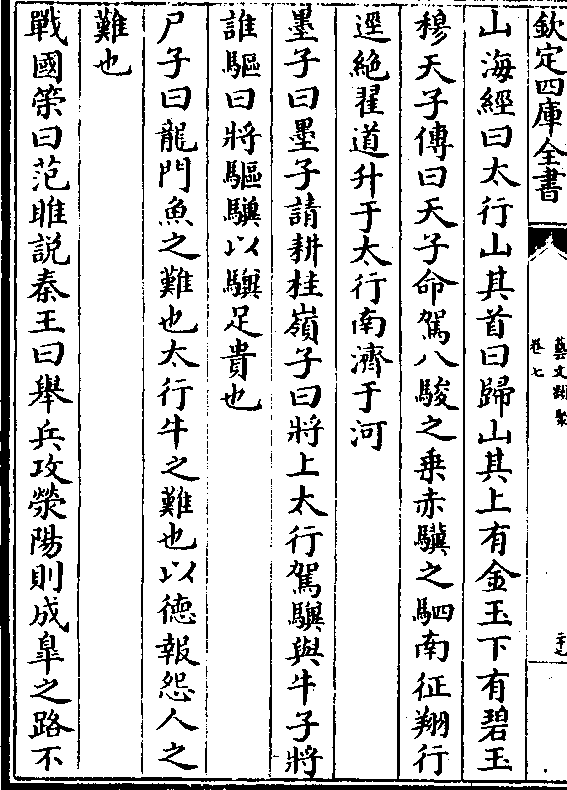 欽定四庫全書
藝文類聚
卷七
山海經曰太行山其首曰歸山其上有金玉下有碧玉
穆天子傳曰天子命駕八駿之乗赤驥之駟南征翔行
逕絶翟道升于太行南濟于河
墨子曰墨子請耕桂嶺子曰將上太行駕驥與牛子將
誰驅曰將驅驥以驥足貴也
尸子曰龍門魚之難也太行牛之難也以徳報怨人之
難也
戰國策曰范睢説秦王曰舉兵攻滎陽則成臯之路不